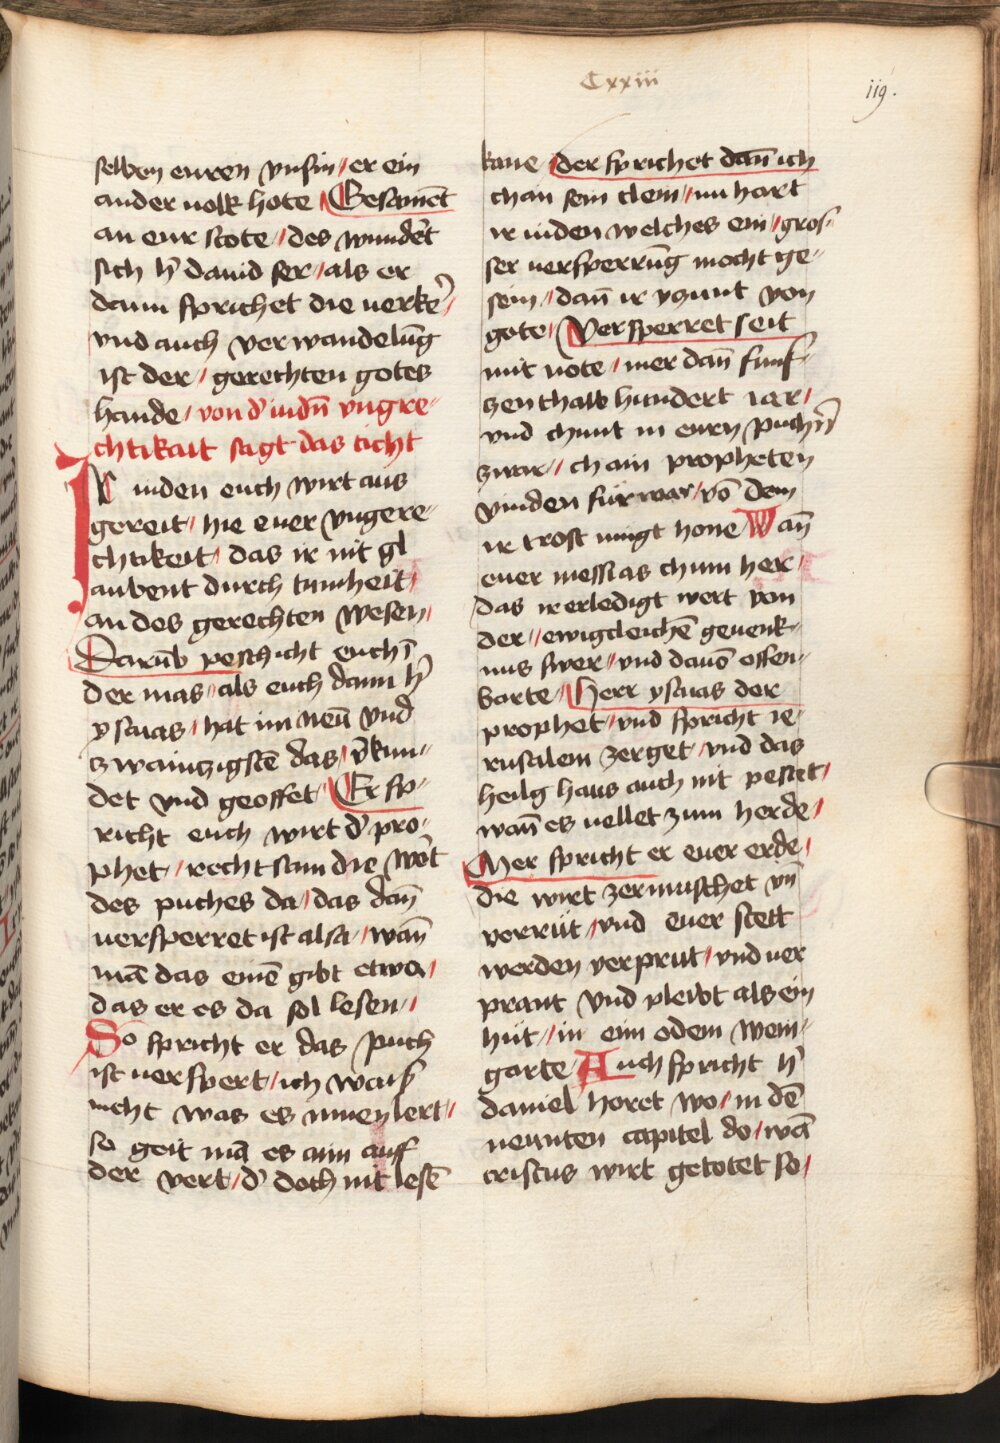 Cxxiii
119.
selben euren vnsin / er ein
ander uolk hote / Gesament
an eur stote / des wundert
sich h̄ dauid ser / als er
dann sprichet die uerke᷑ /
vnd auch verwandelūg
ist der / gerechten gotes
hande / von d᷑ iudn̄ vngre-
chtikait sagt das ticht
Ir iuden euch wirt aus
gereit / hie euer vngere-
chtikeit / das ir nit gl
aubent durch tumheit /
an des gerechten wesen /
Darūb peschicht euch ī
der mas / als euch dann h̄
ysaias / hat im neū vnd
zwainzigstē das / v᷑kun-
det vnd geoffet / Er sp-
richt euch wirt d᷑ pro-
phet / recht sam die wōt
des puches da / das dan̄
uersperret ist alsa / wan̄
mā das einē gibt etwa /
das er es da sol lesen /
So spricht er das puch
ist uerspert / ich wais
nicht was es innen lert /
so geit mā es aim auff
der vert / d᷑ doch nit lesē
kane / der sprichet dan̄ ich
chan sein clein / nu hort
ir iuden welches ein / gros-
ser uersperrūg mocht ge-
sein / dan̄ ir von
gote / Versperret seit
mit note / mer dan̄ funf-
zenthalb hundert iar /
vnd chunt in eurn puchn̄
zwar / chain propheten
vinden fürwar / vō dem
ir trost mugt hone Wan̄
euer messias chum her /
das ir erledigt wert von
der / ewigcleichē geuenk-
nus swer / vnd dauō offen-
barte / Herr ysaias der
prophet / vnd spricht ie-
rusalem zerget / vnd das
heilg haus auch nit pestet /
wan̄ es uellet zum herde /
Mer spricht er euer erde /
die wirt zermuschet vn̄
verrüt / vnd euer stett
werden verprut / vnd uer
prant vnd pleibt als ein
hüt / in eim odem wein-
garte / Auch spricht h̄
daniel horet wo / in dē
neunten capitel do / wā
cristus wirt getotet so /